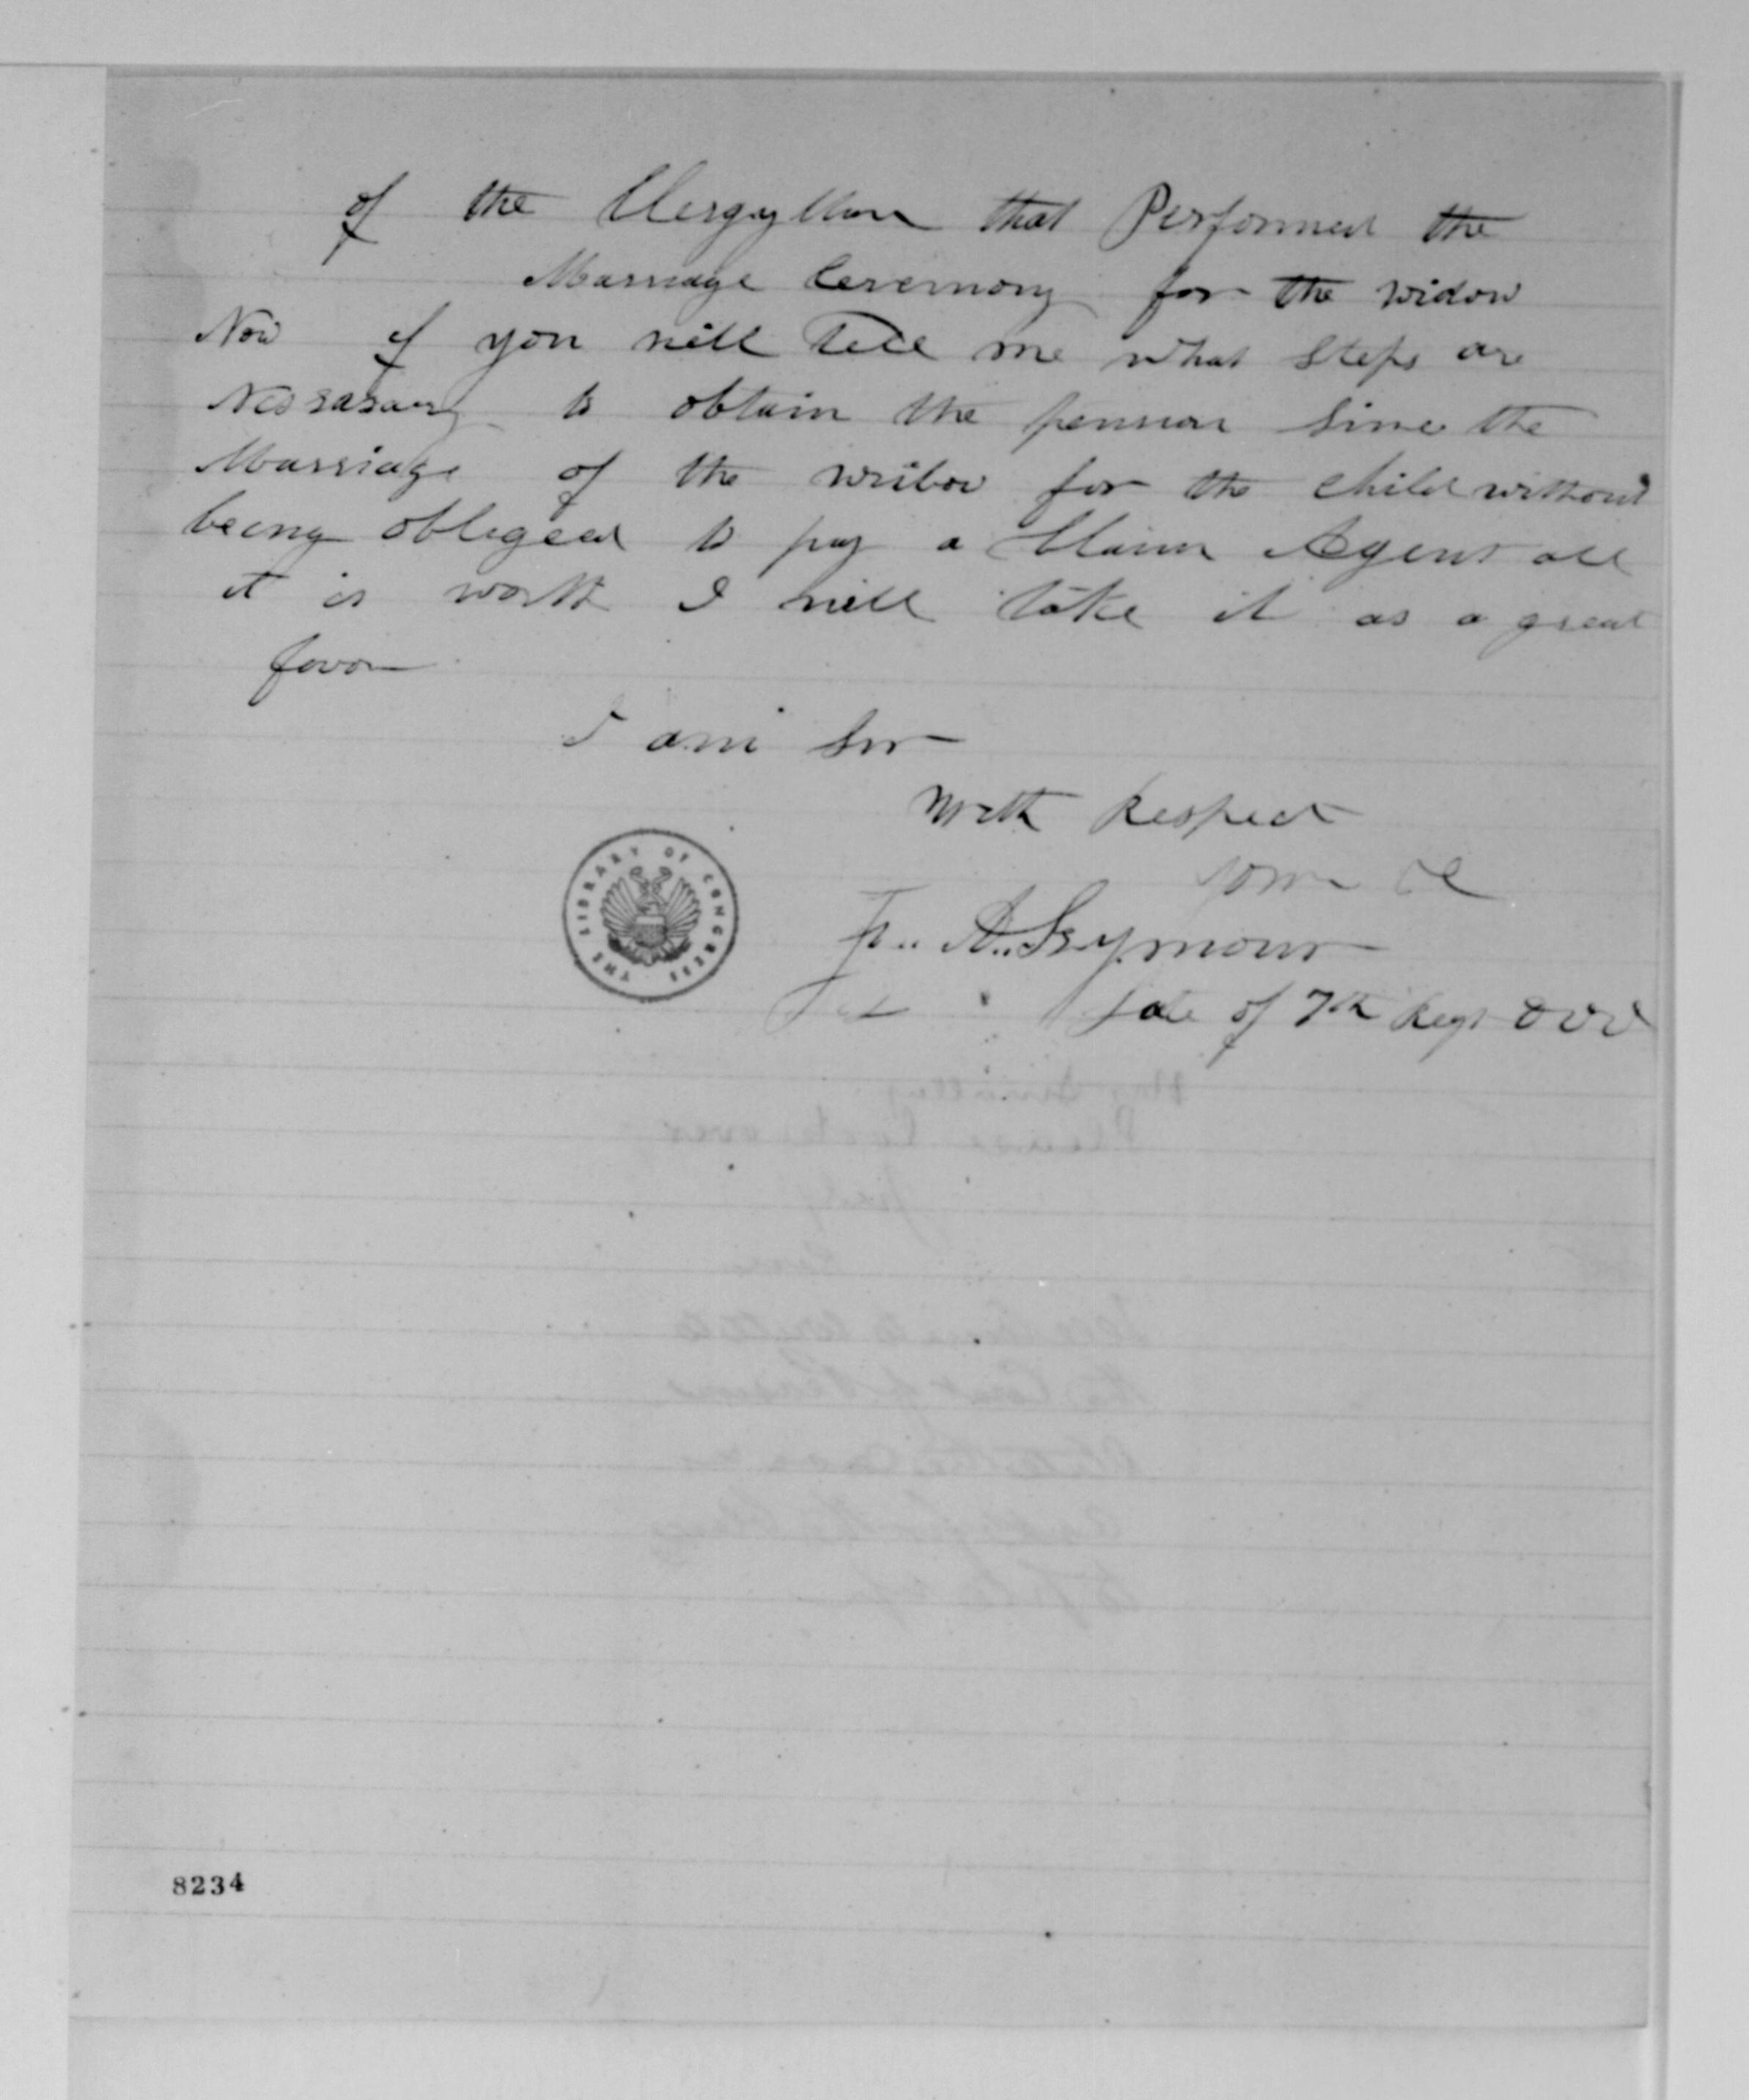 of the ClergyMan that Performed the
Marriage Ceremony for the widow
Now if you will Tell me what steps are
Nessasary to obtain the pension since the
Marriage of the widow for the child without
being obligeed to pay a Claim Agent all
it is worth I will take it as a great
favor
I am Sir
With Respect
Your &c
F.. A.. Seymour
Late of 7th Regt OVV
THE LIBRARY OF CONGRESS
8234